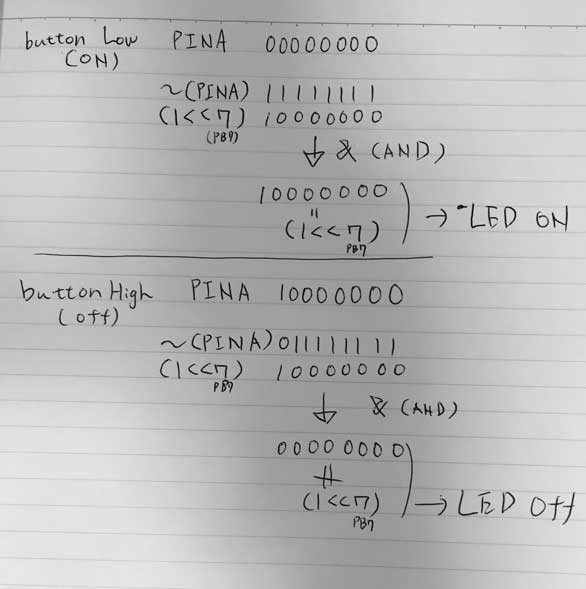 button Low PINA 00000000
(ON)
~(PINA) 11111111
(1<<7) 10000000
(PB7)
↓ & (AND)
10000000
=
(1<<7) → LED ON
PB7
button High PINA 10000000
(off)
~(PINA) 01111111
(1<<7) 10000000
PB7
↓ & (AND)
00000000
≠
(1<<7) → LED Off
PB7